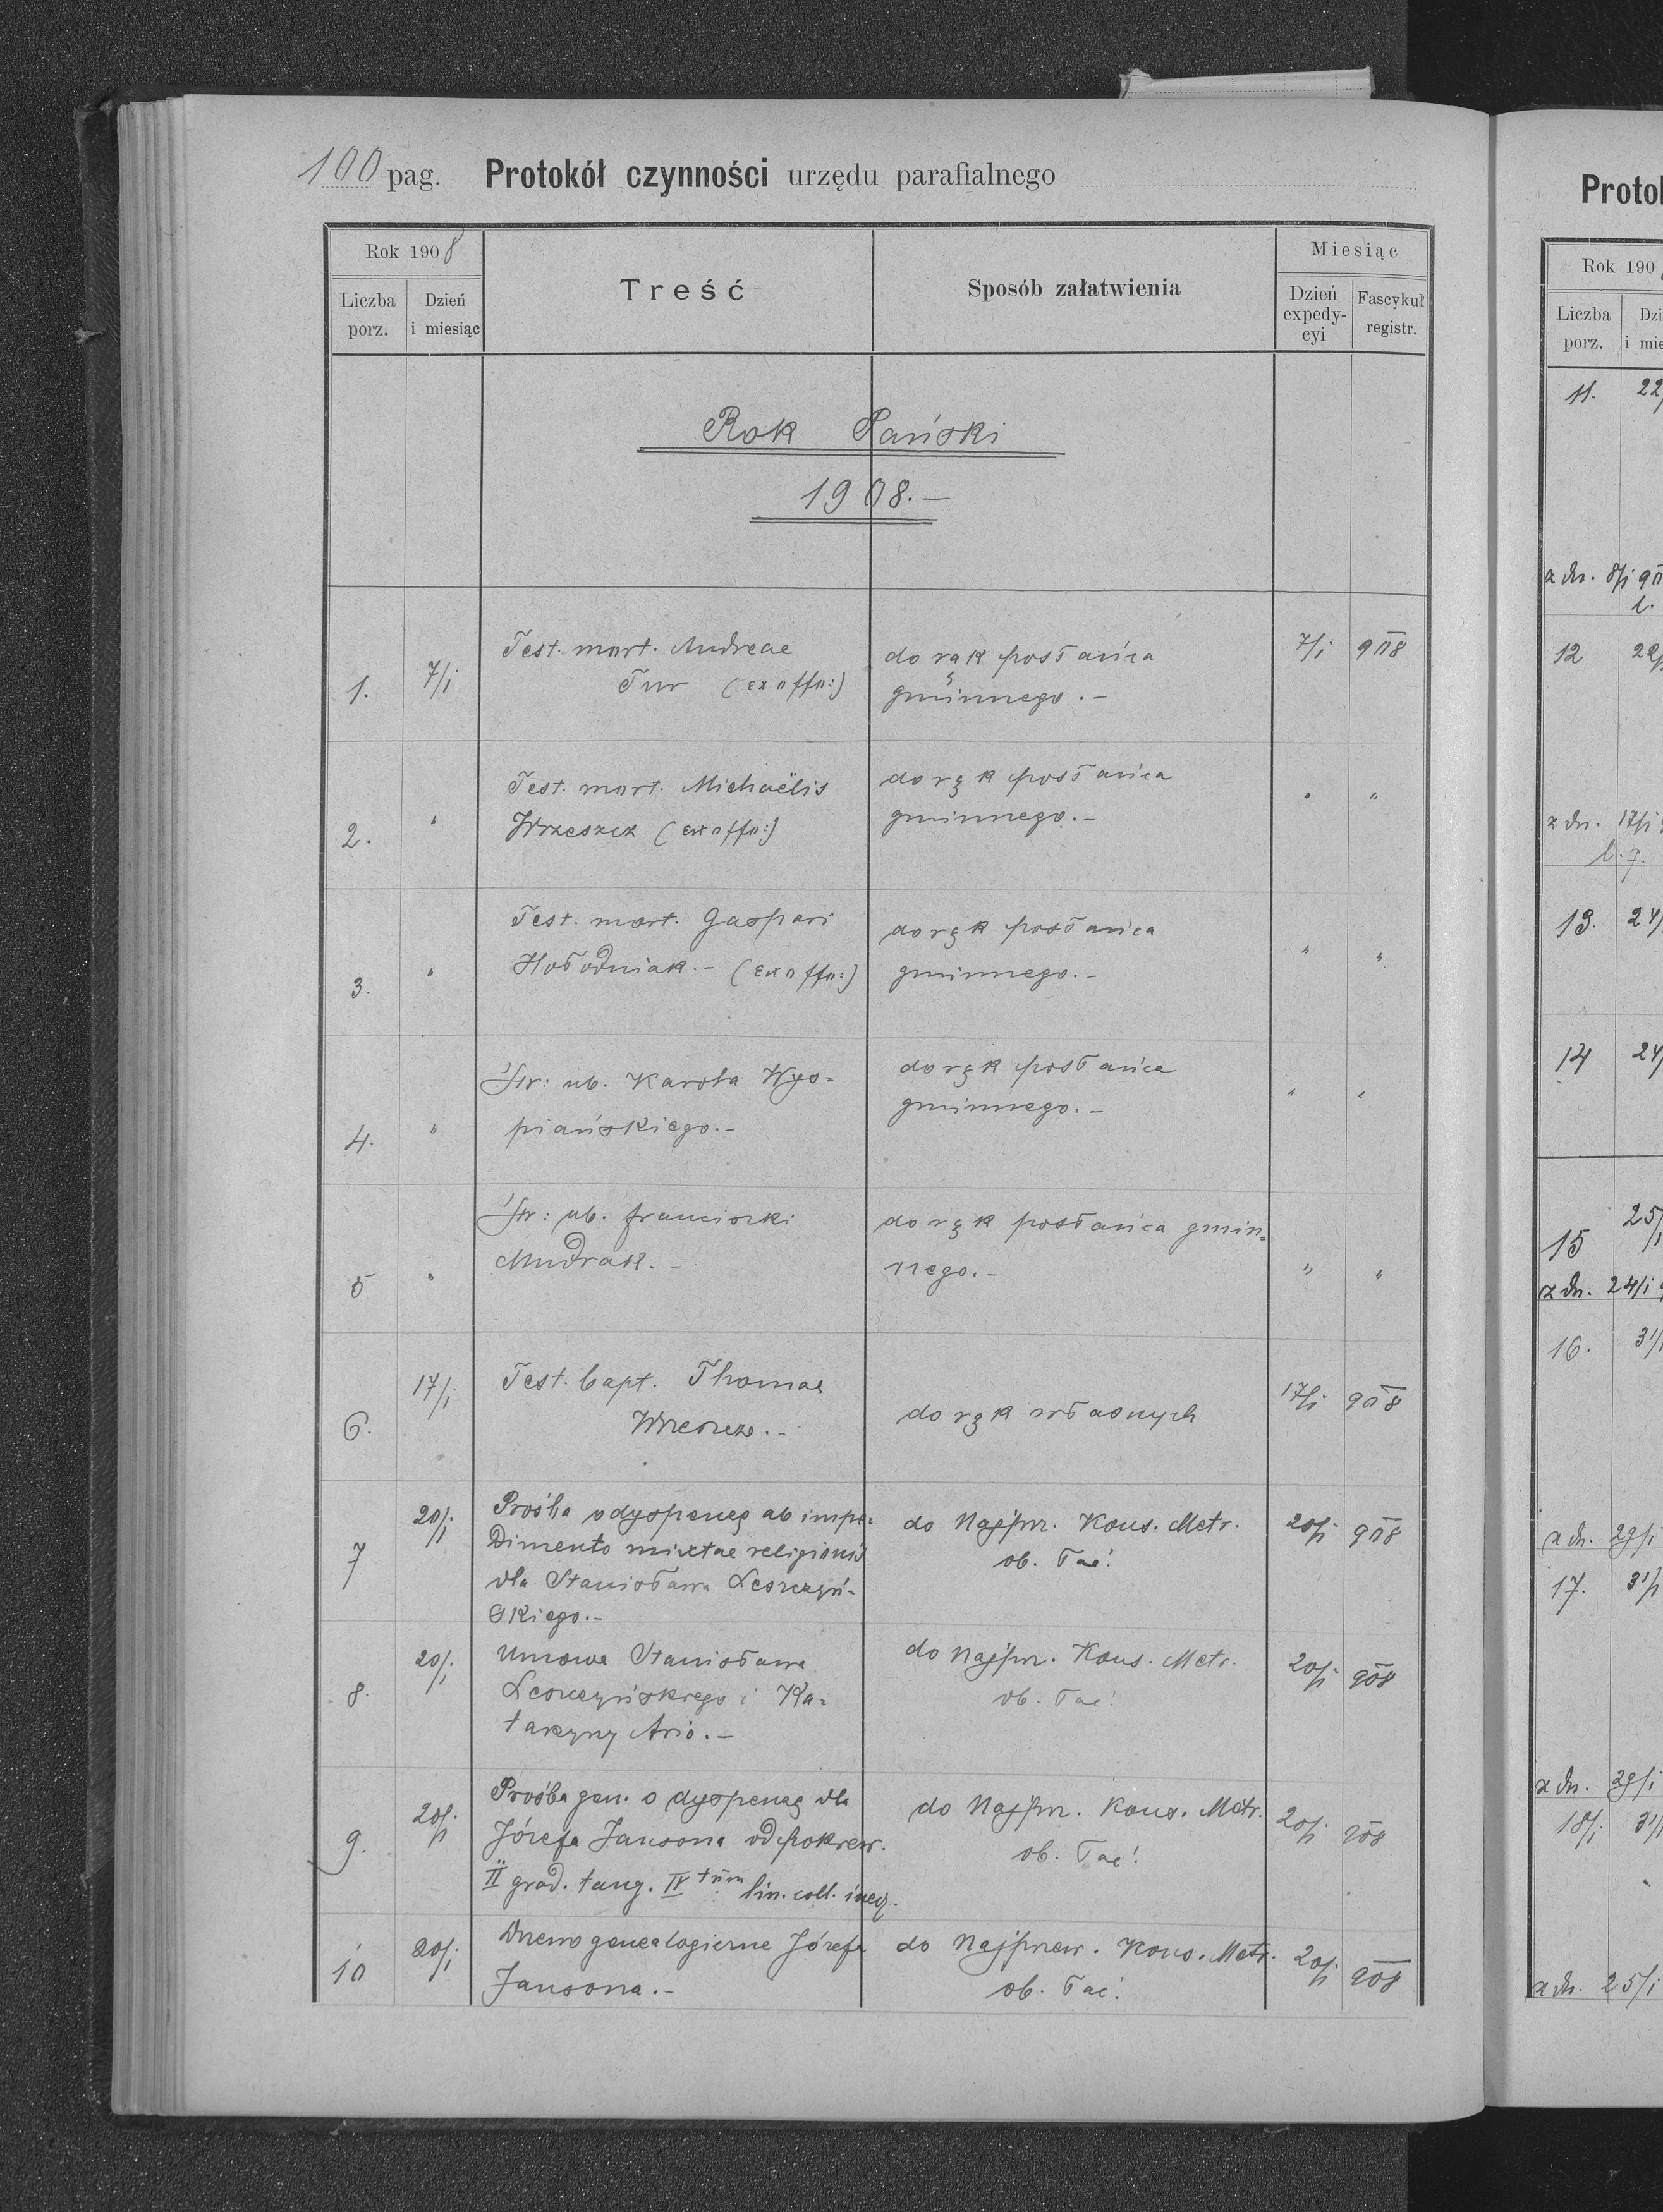 100 pag. Protokół czynności urzędu parafialnego
Rok 1908
Liczba porz.
Dzień i miesiąc
Treść
Sposób załatwienia
Miesiąc
Dzień expedy-cyi
Fascykuł registr.
Rok Pański
1908.-
1. 7/i Test. mort. Andreae do rąk posłańca 7/i 908
Tur (ex offo:) gminnego.-
2. " Test. mort. Michaëlis do rąk posłańca " "
Wrzeszcz (ex offo:) gminnego.-
3. " Test. mort. Gaspari do rąk posłańca " "
Hołodniak.- (ex offo:) gminnego.-
4. " Św: ub. Karola Wys= do rąk posłańca " "
piańskiego.- gminnego.-
5 " Św: ub. Franciszki do rąk posłańca gmin=
Mudrak.- nego.- " "
6. 17/i Test. bapt. Thomae do rąk własnych 17/i 908
Wrzeszcz.-
7 20/i Prośba o dyspensę ab impe= do Najprz. Kons. Metr. 20/i 908
dimento mixtae religionis ob. łać.
dla Stanisława Leszczyń-
skiego.-
8. 20/i Umowa Stanisława do Najprz. Kons. Metr. 20/i 908
Leszczyńskiego i Ka= ob. łać.
tarzyny Ario.-
9. 20/i Prośba gen. o dyspensę dla do Najprz. Kons. Metr. 20/i 908
Józefa Jansona od pokrew. ob. łać.
II grad. tang. IV tum lin. coll. ineq.
10 20/i Drzewo genealogiczne Józefa do Najprzew. Kons. Metr. 20/i 908
Jansona.- ob. łać.
Protok
Rok 190
Liczba porz.
Dzi
i mie
11. 22/
z dn. 8/i 90
l.
12 22/
z dn. 17/i
l. 7.
13. 24/
14 24/
15 25/i
z dn. 24/i
16. 31/
z dn. 29/i
17. 31/i
z dn. 29/i
18/i 31/
z dn. 25/i